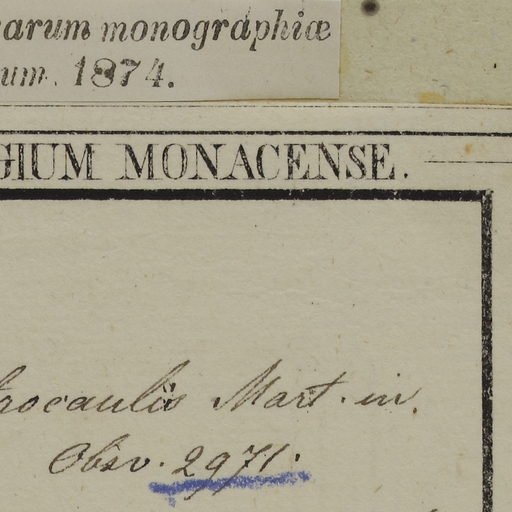 arum monographiæ
um. 1874.
GIUM MONACENSE.
rocaulis Mart. in.
Obsv. 2971.